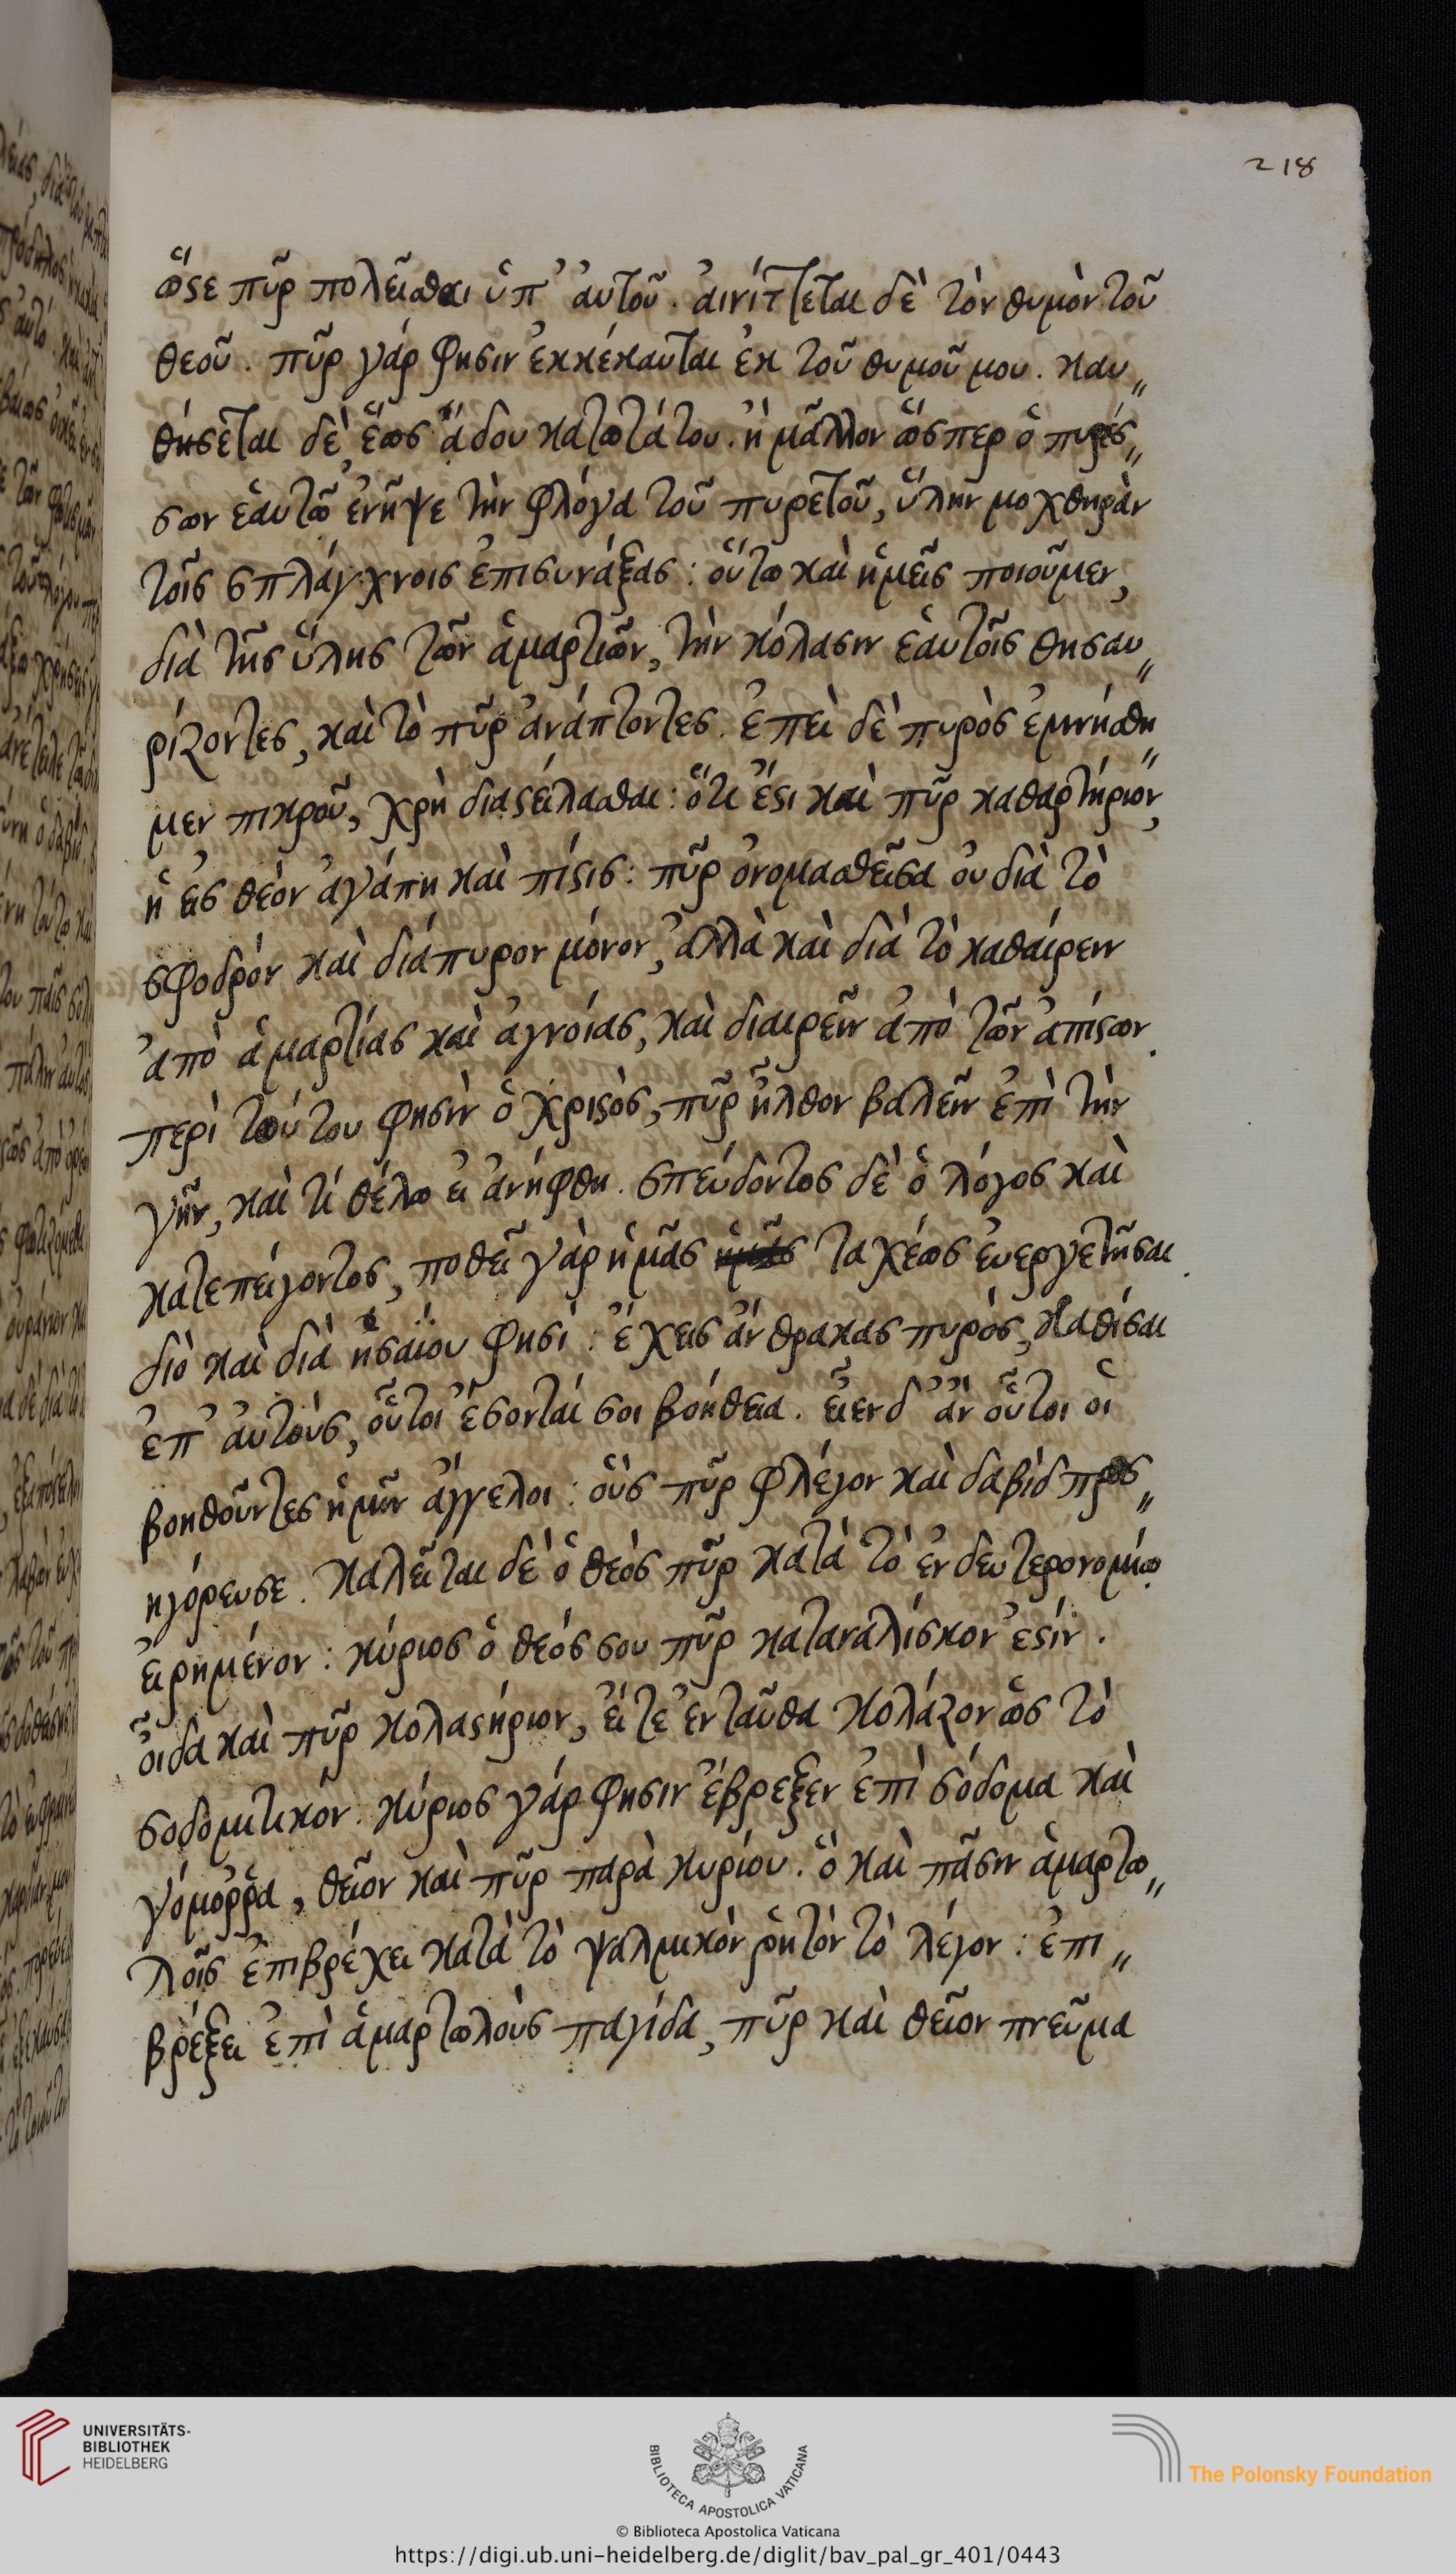 218
ὥστε πῦρ πολεῖσθαι ὑπ' αὐτοῦ. αἰνίττεται δὲ τὸν θυμὸν τοῦ
θεοῦ. πῦρ γάρ φησιν ἐκκέκαυται ἐκ τοῦ θυμοῦ μου. καυ„
θήσεται δὲ ἕως ἅδου κατωτάτου. ἢ μᾶλλον ὥσπερ ὁ πυρέσ„
σων ἑαυτῶ ἐνῆψε τὴν φλόγα τοῦ πυρετοῦ, ὕλην μοχθηρὰν
τοῖς σπλάγχνοις ἐπισυνάξας: οὕτω καὶ ἡμεῖς ποιοῦμεν,
διὰ τῆς ὕλης τῶν ἁμαρτιῶν, τὴν κόλασιν ἑαυτοῖς θησαυ„
ρίζοντες, καὶ τὸ πῦρ ἀνάπτοντες. ἐπεὶ δὲ πυρὸς ἐμνήσθη„
μεν πικροῦ, χρὴ διαστείλασθαι: ὅτι ἔστι καὶ πῦρ καθαρτήριον,
ἡ εἰς θεὸν ἀγάπη καὶ πίστις: πῦρ ὀνομασθεῖσα οὐ διὰ τὸ
σφοδρὸν καὶ διάπυρον μόνον, ἀλλὰ καὶ διὰ τὸ καθαίρειν
ἀπὸ ἁμαρτίας καὶ ἀγνοίας, καὶ διαιρεῖν ἀπὸ τῶν ἀπίστων.
περὶ τούτου φησὶν ὁ χριστὸς, πῦρ ἦλθον βαλεῖν ἐπὶ τὴν
γῆν, καὶ τί θέλω εἰ ἀνήφθη. σπεύδοντος δὲ ὁ λόγος καὶ
κατεπείγοντος, ποθεῖ γὰρ ἡμᾶς ταχέως εὐεργετῆσαι.
διὸ καὶ διὰ ἡσαΐου φησί: ἔχεις ἄνθρακας πυρὸς, κάθισαι
ἐπ' αὐτοὺς, οὗτοι ἔσονταί σοι βοήθεια. εἶεν δ' ἂν οὗτοι οἱ
βοηθοῦντες ἡμῖν ἄγγελοι: οὓς πῦρ φλέγον καὶ δαβὶδ προς„
ηγόρευσε. καλεῖται δὲ ὁ θεὸς πῦρ κατὰ τὸ ἐν δευτερονομίω
εἰρημένον: κύριος ὁ θεός σου πῦρ καταναλίσκον ἐστίν.
οἶδα καὶ πῦρ κολαστήριον, εἴτε ἐνταῦθα κολάζον ὡς τὸ
σοδομιτικόν. κύριος γάρ φησιν ἔβρεξεν ἐπὶ σόδομα καὶ
γόμοῤῥα, θεῖον καὶ πῦρ παρὰ κυρίου. ὃ καὶ πᾶσιν ἁμαρτω„
λοῖς ἐπιβρέχει κατὰ τὸ ψαλμικὸν ῥητὸν τὸ λέγον: ἐπι„
βρέξει ἐπὶ ἁμαρτωλοὺς παγίδα, πῦρ καὶ θεῖον πνεῦμα
UNIVERSITÄTS-
BIBLIOTHEK
HEIDELBERG
BIBLIOTECA APOSTOLICA VATICANA
The Polonsky Foundation
© Biblioteca Apostolica Vaticana
https://digi.ub.uni-heidelberg.de/diglit/bav_pal_gr_401/0443